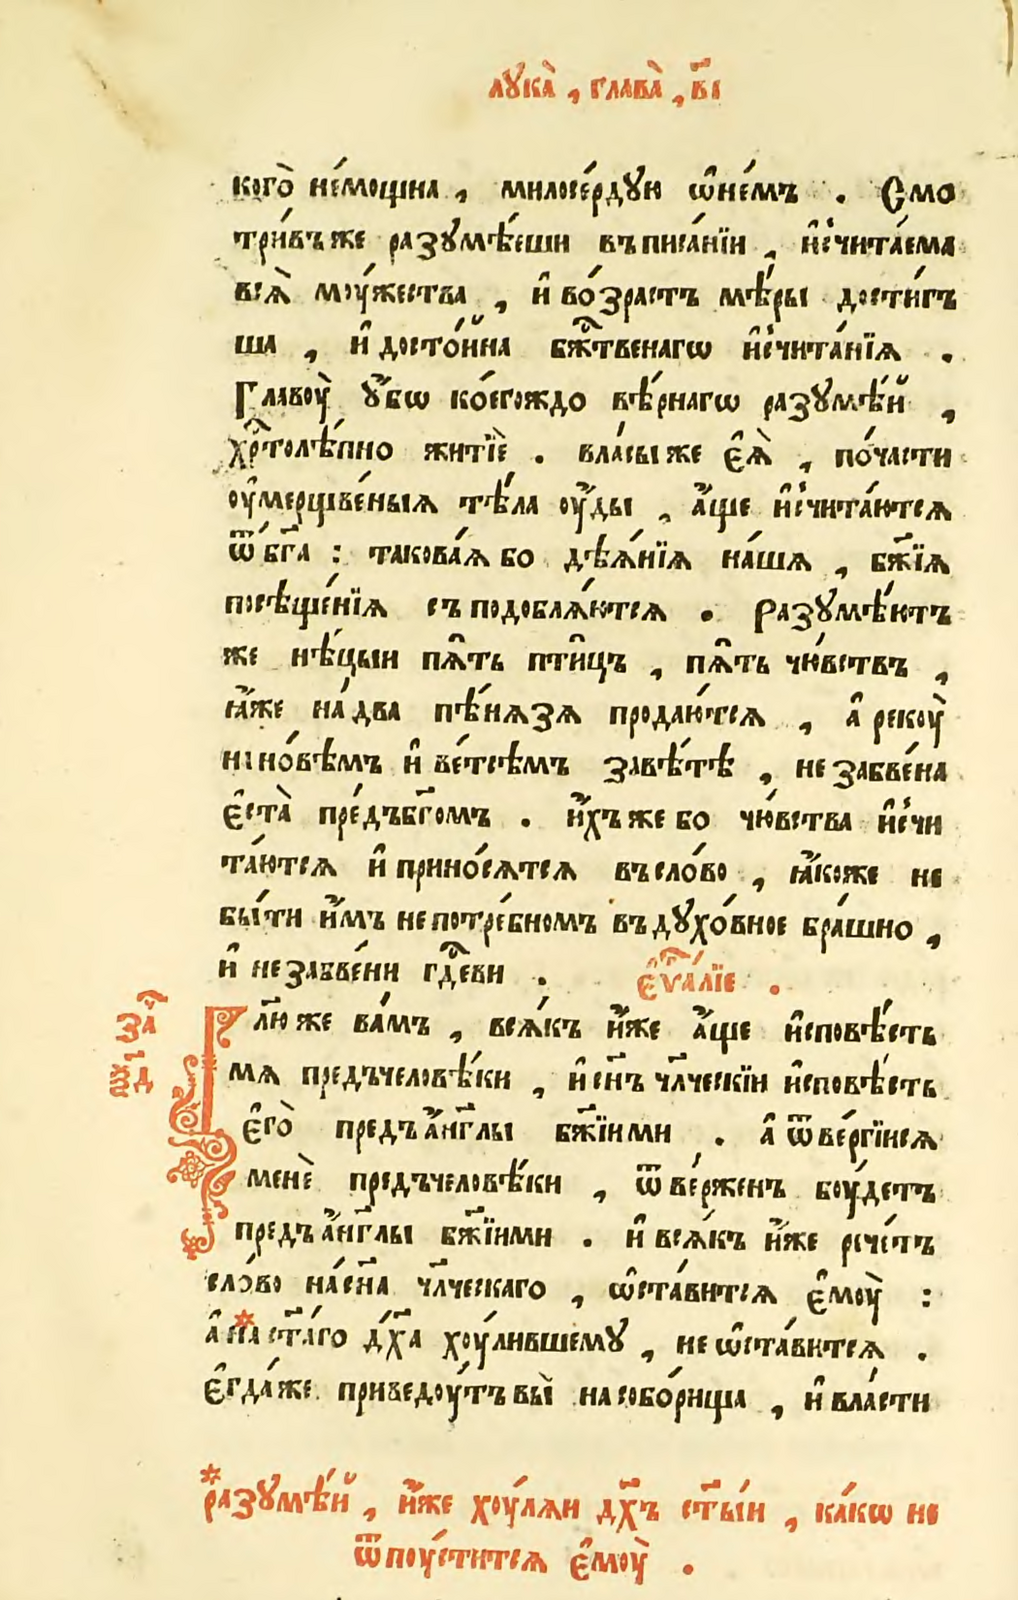 лꙋка̀ , глава̀ , в҃і
кого̀ не́мощна , милосе́рдꙋю ѡ҆не́мъ . Смо
три́въже разꙋмѣ́еши въписа́нїи , и҆счита́ема
всѧ̀ моу́жества , и҆ во́зрастъ мѣ́ры дости́гъ
ша , и҆ досто́йна бж҇твенагѡ и҆счита́нїѧ .
Главоу̀ ᲂу҆́бѡ кое́гождо вѣ́рнагѡ разꙋмѣ́й ,
хрⷭ҇толѣ́пно житїѐ . вла́сыже є҆ѧ̀ , поча́сти
ᲂу҆мерщве́ныѧ тѣ́ла ᲂу҆́ды , а҆́ще и҆счита́ютсѧ
ѿ бг҃а : такова́ѧбо дѣѧ́нїѧ на́шѧ , бж҃їѧ
посѣще́нїѧ съподоблѧ́ютсѧ . Разꙋмѣ́ютъ
же нѣ́цыи пѧ҆́ть пти́цъ , пѧ҆́ть чю́вствъ ,
ꙗ҆́же на́два пѣ́нѧзѧ продаю́тсѧ , а҆ рекоу̀
нано́вѣмъ и҆ ве́тсѣмъ завѣ́тѣ , незабве́на
є҆ста̀ пре́дъбг҃омъ . и҆́хъжебо чю́вства и҆счи
та́ютсѧ и҆ прино́сѧтсѧ въсло́во , ꙗ҆́коже не
бы́ти и҆́мъ непотре́бномъ вдꙋхо́вное бра́шно ,
и҆ незабве́ни гдⷭ҇еви . є҆ѵⷢ҇а́лїе .
Гл҃юже ва́мъ , всѧ́къ и҆́же а҆́ще и҆сповѣ́сть
за҇
ѯ҃д
мѧ предъчеловѣ́ки , и҆ сн҃ъ чл҃ческїи и҆сповѣ́сть
є҆го̀ предъ а҆́нг҃лы бж҃їими . а҆ ѿве́ргїисѧ
менѐ предъчеловѣ́ки , ѿве́рженъ боу́детъ
предъ а҆́нг҃лы бж҃їими . и҆ всѧ́къ и҆́же рече́тъ
сло́во на́сн҃а чл҃ческаго , ѡ҆ста́витсѧ є҆моу̀ :
а҆ *на ст҃а́го дх҃а хоу́лившемꙋ , неѡста́витсѧ .
є҆гда́же приведоу́тъ вы̀ насобо́рища , и҆ вла́сти
* разꙋмѣ́й , и҆́же хоу́лѧи дх҃ъ ст҃ы́и , ка́кѡ не
ѿпоу́ститсѧ є҆моу̀ .